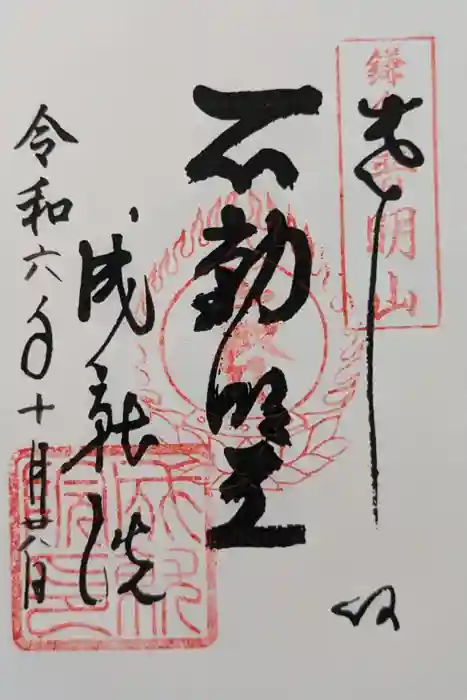 奉拝
不動明王
成就院
令和六年十月廿八日
明山